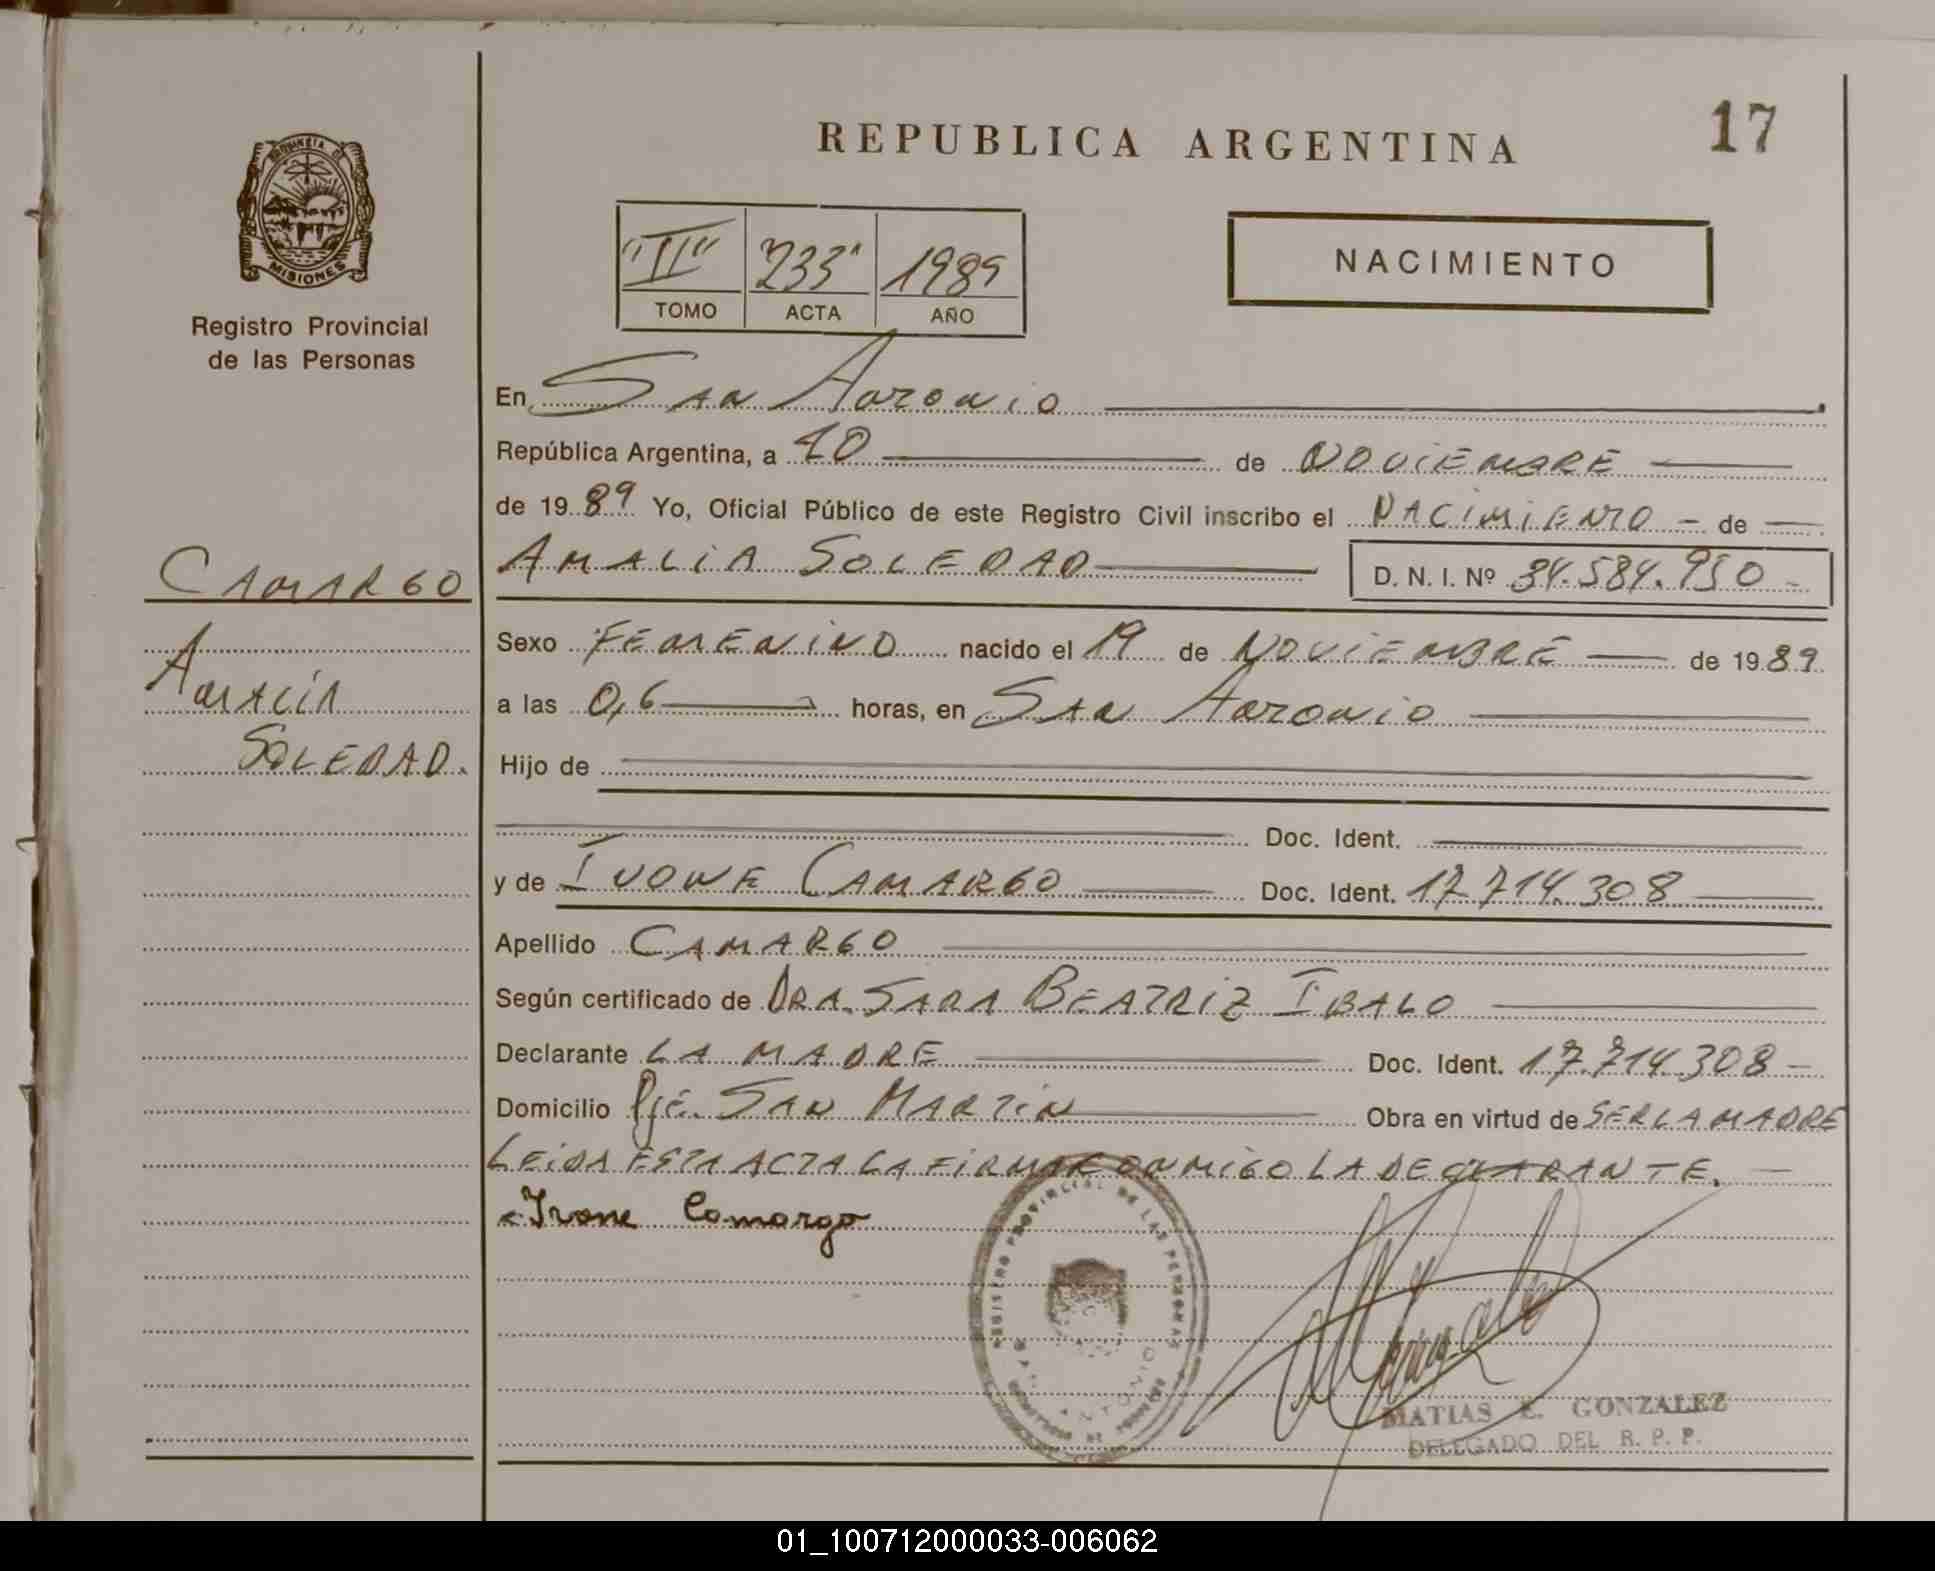 17
REPUBLICA ARGENTINA
PROVINCIA D
MISIONES
Registro Provincial
de las Personas
"III" 233" 1989
TOMO ACTA AÑO
NACIMIENTO
En San Antonio
República Argentina, a 20 de NOVIEMBRE
de 1989 Yo, Oficial Público de este Registro Civil inscribo el NACIMIENTO - de
CAMARGO
AMALIA
SOLEDAD.
AMALIA SOLEDAD D. N. I. Nº 34.584.950 -
Sexo FEMENINO nacido el 19 de NOVIEMBRE de 1989
a las 0,6 horas, en San Antonio
Hijo de
Doc. Ident.
y de IVONE CAMARGO Doc. Ident. 17.714.308
Apellido CAMARGO
Según certificado de DRA. SARA BEATRIZ IBALO
Declarante LA MADRE Doc. Ident. 17.714.308 -
Domicilio Pje. SAN MARTIN Obra en virtud de SER LA MADRE
LEIDA ESTA ACTA LA FIRMA CONMIGO LA DECLARANTE.
Ivone Camargo
REGISTRO PROVINCIAL DE LAS PERSONAS
MATIAS E. GONZALEZ
DELEGADO DEL R. P. P.
01_100712000033-006062